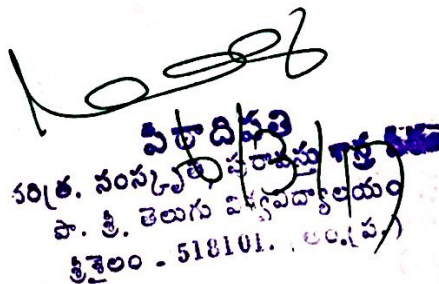 పీఠాధిపతి
చరిత్ర. సంస్కృతి, పురావస్తు శాస్త్ర
పొ. శ్రీ. తెలుగు విశ్వవిద్యాలయం
శ్రీశైలం - 518101. ఆం.(ప.)